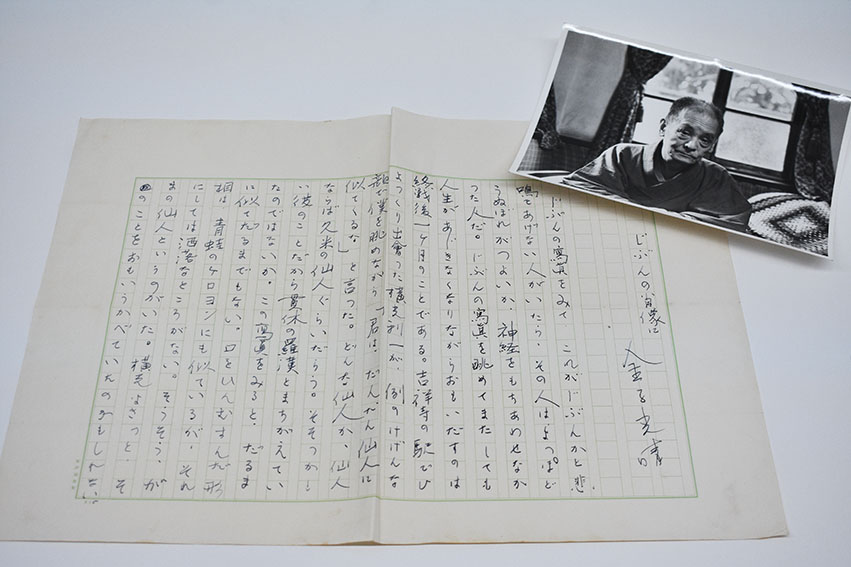 じぶんの肖像に
金子光晴
じぶんの寫真をみて、これがじぶんかと悲
鳴をあげない人がいたら、その人はよっぽど
うぬぼれがつよいか、神経をもちあわせなか
った人だ。じぶんの寫真を眺めてまたしても
人生があじきなくなりながらおもいだすのは
終戦後一ケ月のことである。吉祥寺の駅でひ
ょっくり出會った横光利一が、例のけげんな
顔で僕を眺めながら「君は、だんだん仙人に
似てくるな」と言った。どんな仙人か、仙人
ならば久米の仙人ぐらいだらう。そそつかし
い彼のことだから貫休の羅漢とまちがえてい
たのではないか。この寫真をみると、だるま
に似てだるまでもない。口をひんむすんだ形
相は、青蛙のケロヨンにも似ているが、それ
にしては洒落なところがない。そうそう、が
まの仙人というのがいた。横光はきっと、そ
のことをおもいうかべていたのかもしれない。